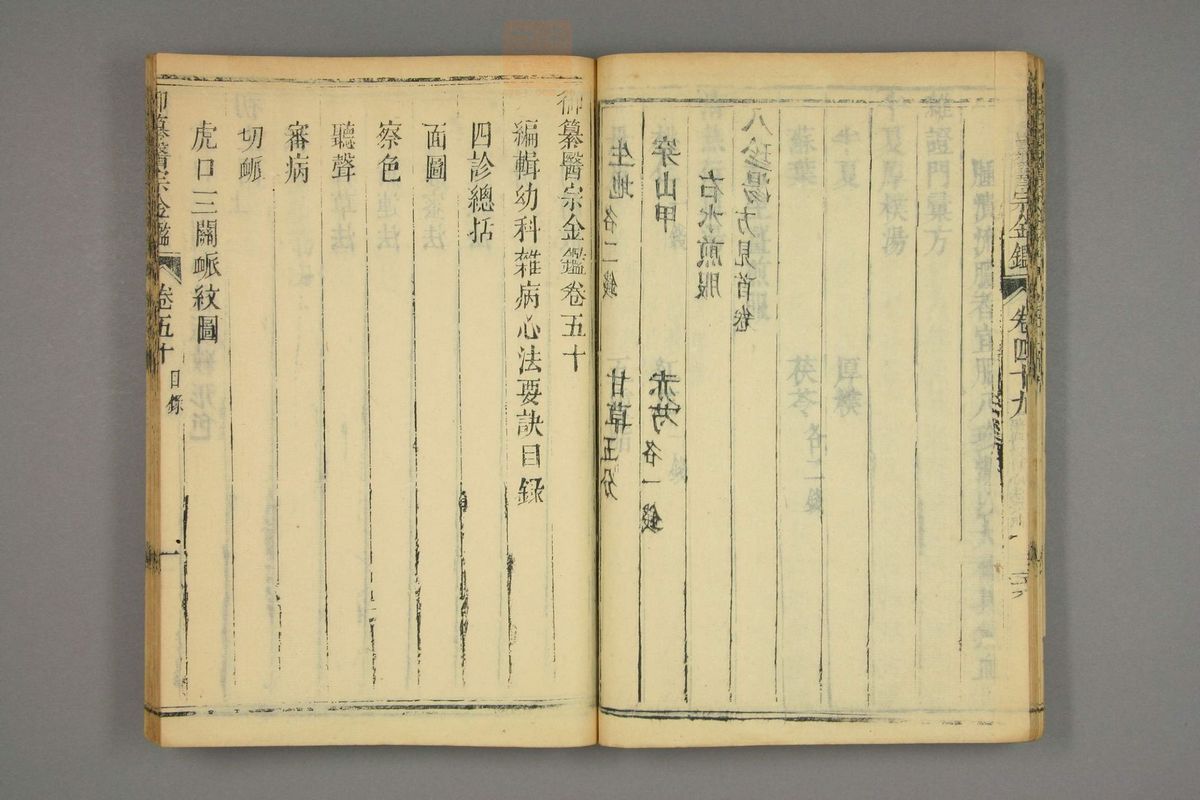 卷四十九
雜證門彙方
半夏厚樸湯
半夏 厚樸
蘇葉 茯苓各二錢
八珍湯方見首卷
右水煎服
穿山甲 赤芍各一錢
生地各二錢 甘草五分
御纂醫宗金鑑卷五十
編輯幼科雜病心法要訣目錄
四診總括
面圖
察色
聽聲
審病
切脈
虎口三關脈紋圖
御纂醫宗金鑑 卷五十 目錄 一